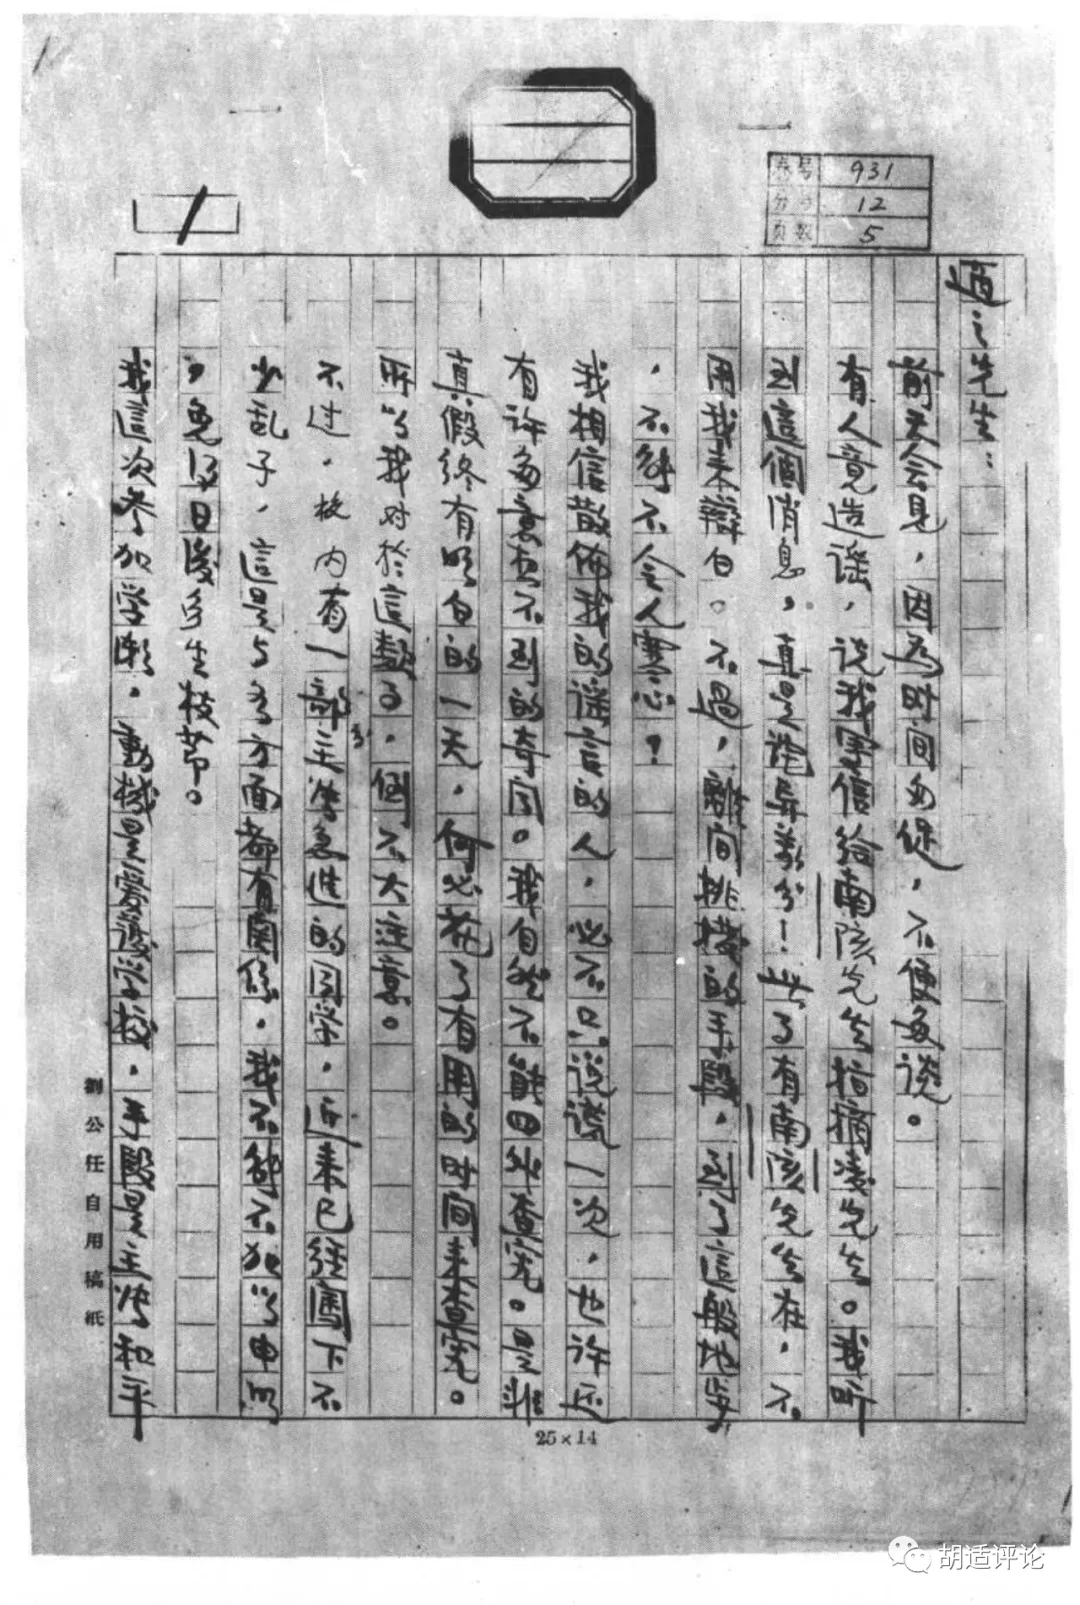 卷号 931
分号 12
页数 5
適之先生：
前天会見，因為时间匆促，不便多谈。
有人竟造谣，说我写信给南陔先生指摘凌先生。我听
到這個消息，真是诧异萬分！此了有南陔先生在，不
用我来辯白。不過，離间挑撥的手段，到了這般地步
，不能不令人寒心？
我相信散佈我的谣言的人，必不只说謊一次，也许还
有许多意想不到的奇闻。我自然不能四外查究。是非
真假终有明白的一天，何必花了有用的时间来查究。
所以我对於這類了，倒不大注意。
不过，校内有一部分主张急进的同学，近来已经闖下不
少乱子，這是与各方面都有関係，我不能不加以申明
，免得日後多生枝节。
我這次参加学潮，動機是爱護学校，手段是主张和平
劉公任自用稿紙
25×14
胡适评论